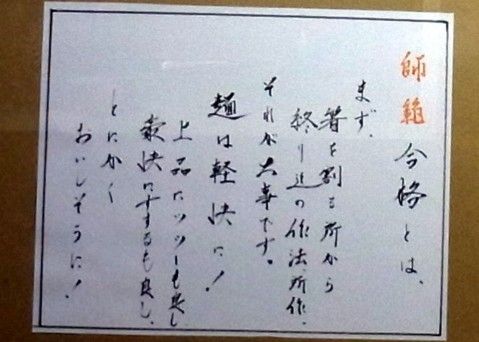 師範合格とは、
まず、
箸を割る所から
終り迄の作法、所作、
それが大事です。
麺は軽快に!
上品にツツーも良し、
豪快にするも良し、
とにかく
おいしそうに!